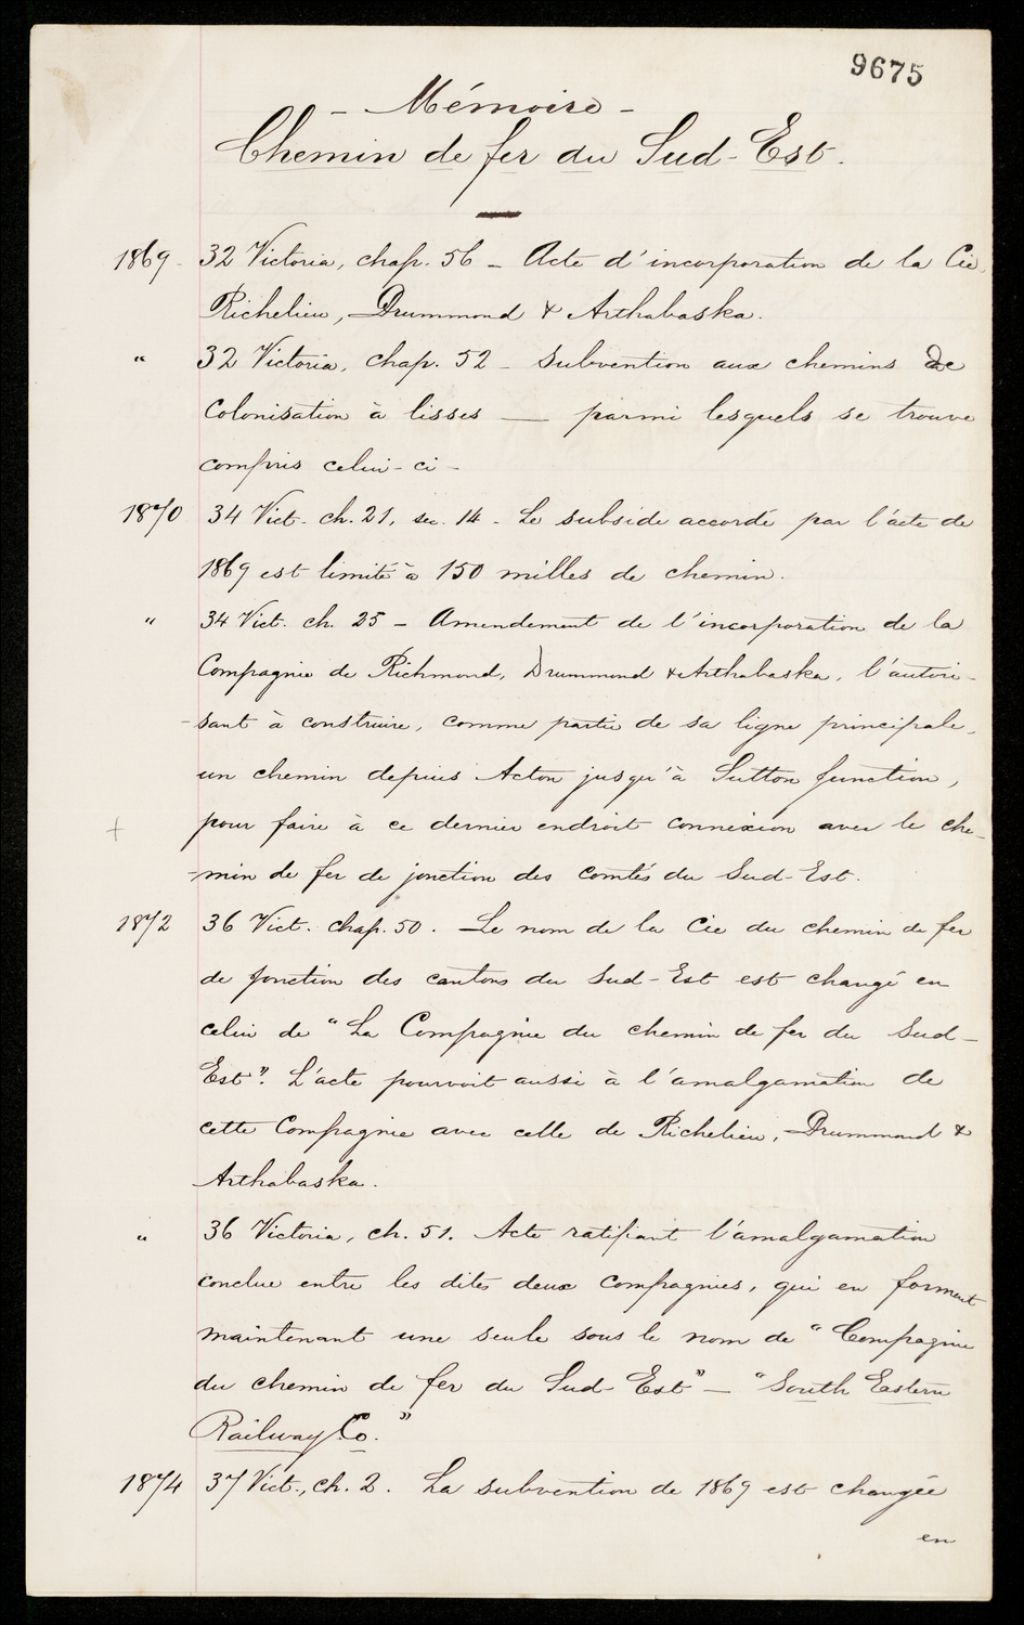 9675
- Mémoire -
Chemin de fer du Sud-Est.
1869 - 32 Victoria, chap. 56 - Acte d'incorporation de la Cie,
Richelieu, Drummond & Arthabaska.
" 32 Victoria, chap. 52 - Subvention aux chemins de
Colonisation à lisses — parmi lesquels se trouve
compris celui-ci -
1870 34 Vict. ch. 21, sec. 14 - Le subside accordé par l'acte de
1869 est limité à 150 milles de chemin.
" 34 Vict. ch. 25 - Amendement de l'incorporation de la
Compagnie de Richmond, Drummond & Arthabaska, l'autori-
-sant à construire, comme partie de sa ligne principale,
un chemin depuis Acton jusqu'à Sutton Junction,
+ pour faire à ce dernier endroit connexion avec le che-
-min de fer de jonction des comtés du Sud-Est.
1872 36 Vict. chap. 50. Le nom de la Cie du chemin de fer
de Jonction des cantons du Sud-Est est changé en
celui de "La Compagnie du chemin de fer du Sud-
Est". L'acte pourvoit aussi à l'amalgamation de
cette Compagnie avec celle de Richelieu, Drummond &
Arthabaska.
" 36 Victoria, ch. 51. Acte ratifiant l'amalgamation
conclue entre les dites deux Compagnies, qui en forment
maintenant une seule sous le nom de "Compagnie
du chemin de fer du Sud-Est" - "South Eastern
Railway Co."
1874 37 Vict., ch. 2. La subvention de 1869 est changée
en